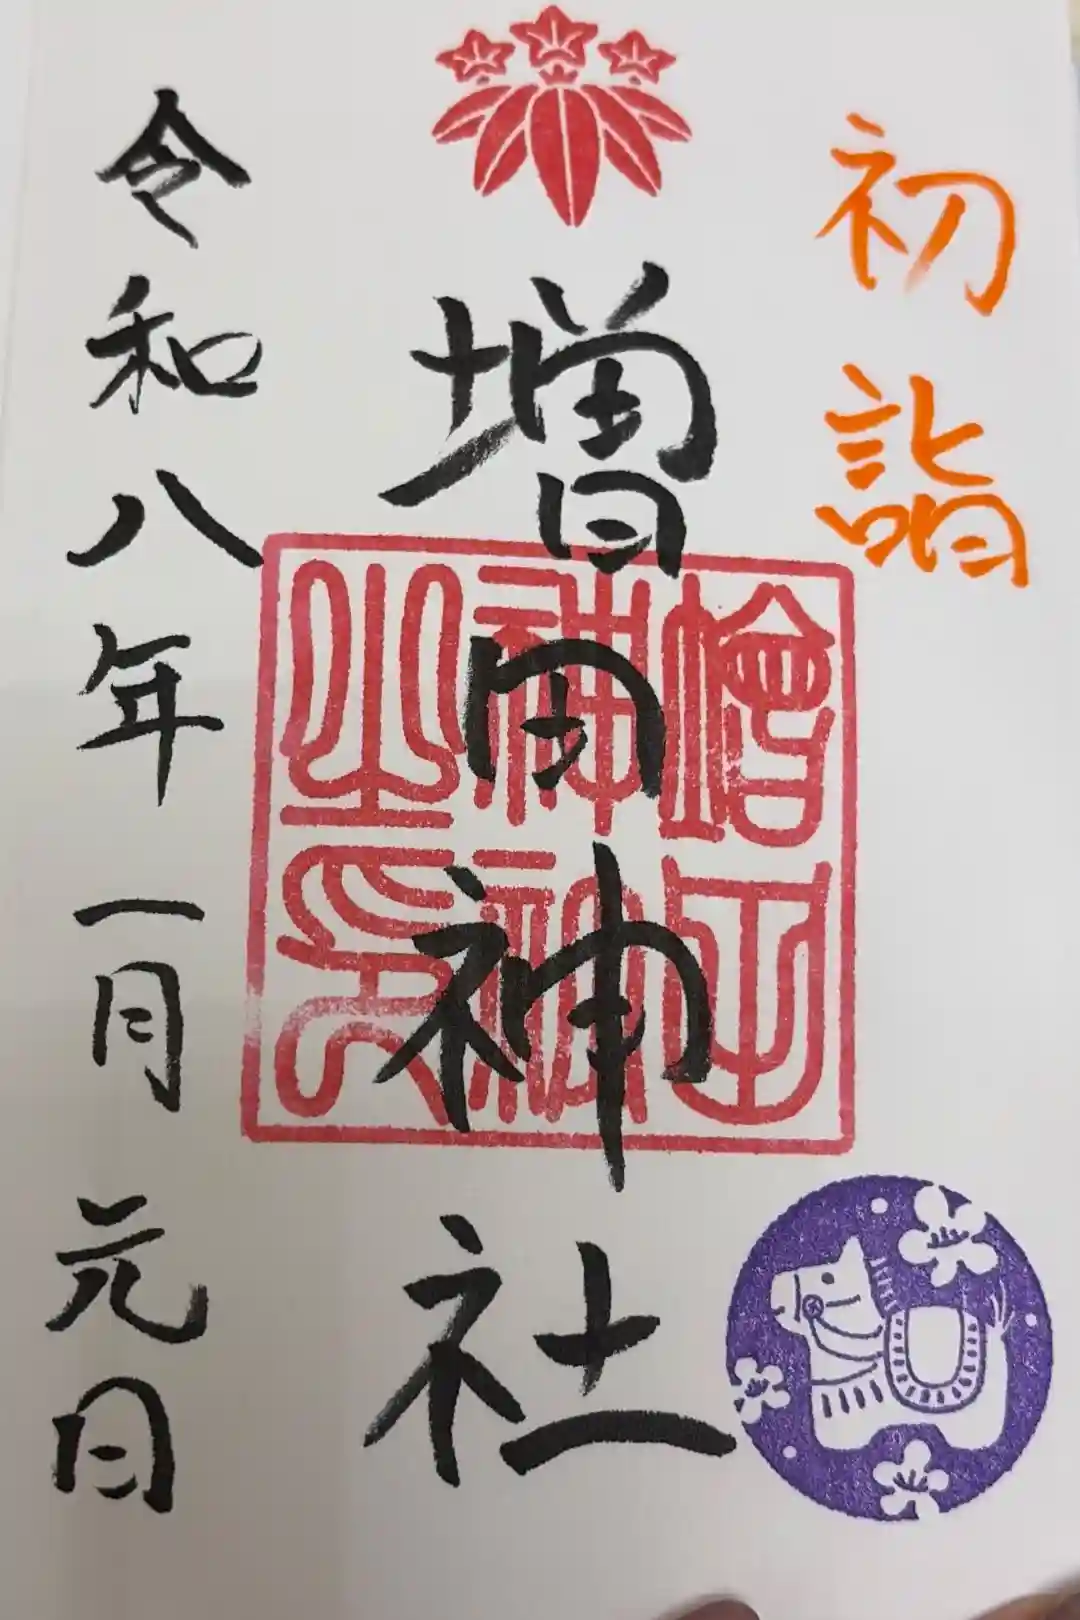 初詣
増田神社
増田
神社
之印
令和八年一月元日